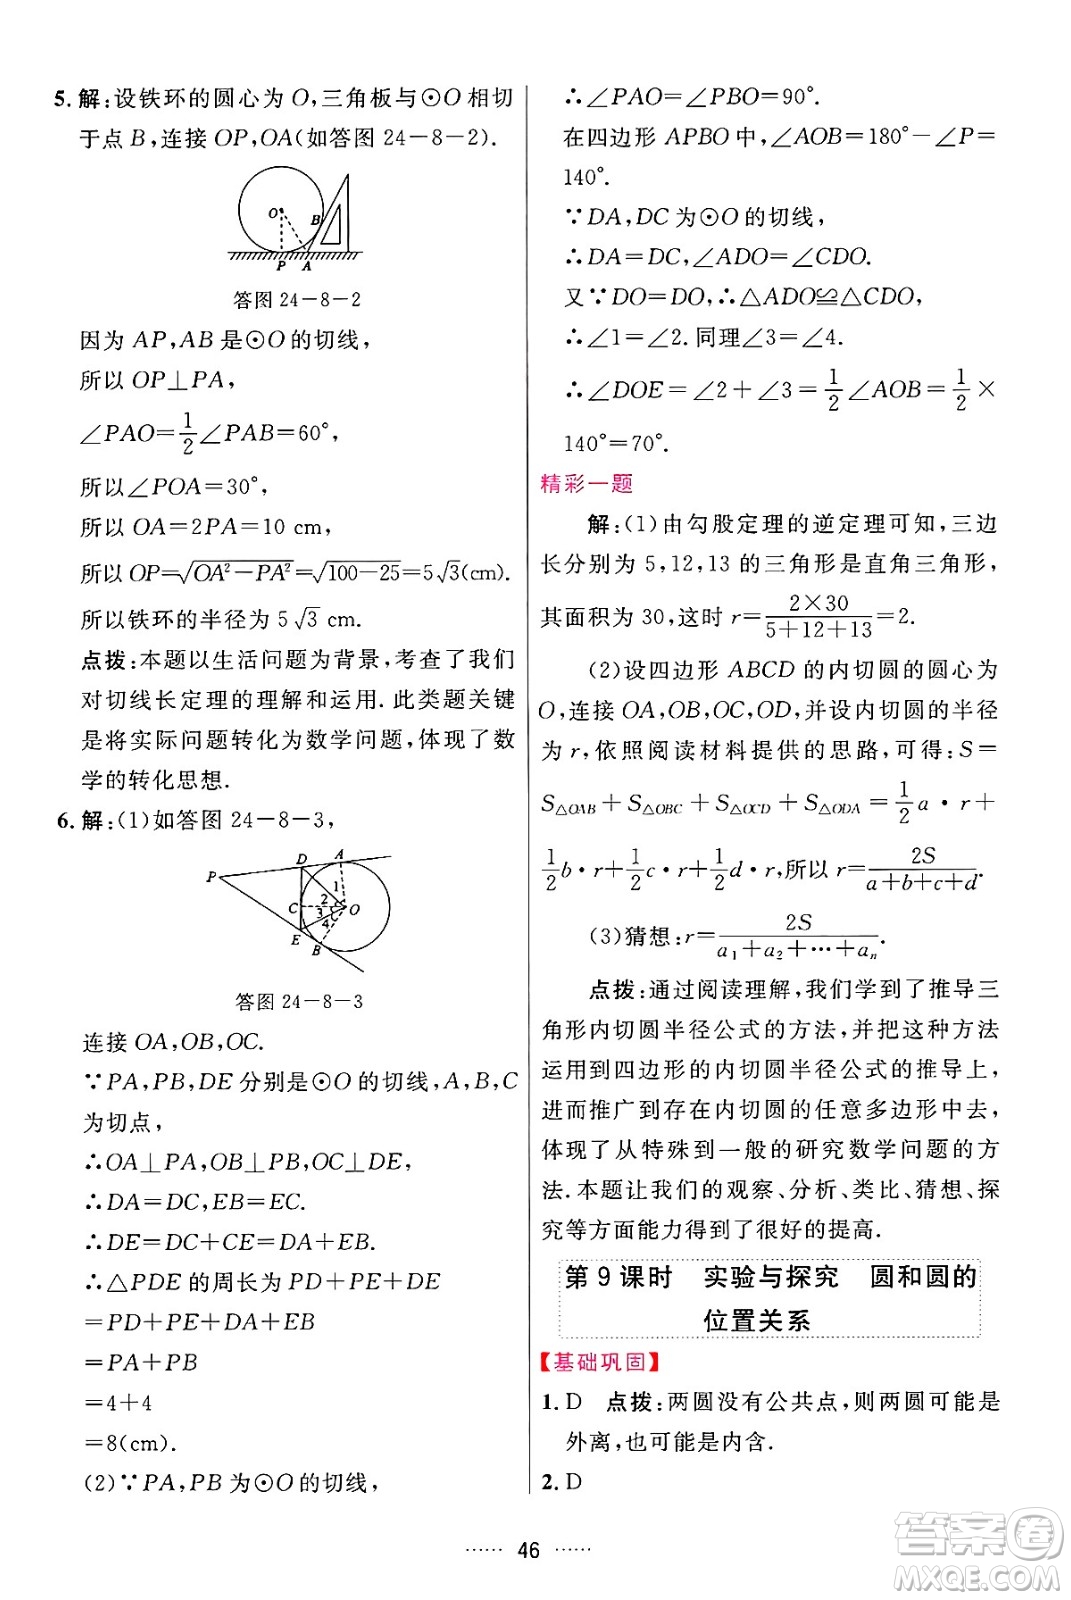 5. 解:设铁环的圆心为 O,三角板与⊙O 相切
于点 B,连接 OP,OA(如答图 24-8-2).
O
B
P A
答图 24-8-2
因为 AP,AB 是⊙O 的切线,
所以 OP⊥PA,
∠PAO=1/2∠PAB=60°,
所以∠POA=30°,
所以 OA=2PA=10 cm,
所以 OP=√(OA²-PA²)=√(100-25)=5√3(cm).
所以铁环的半径为 5√3 cm.
点拨:本题以生活问题为背景,考查了我们
对切线长定理的理解和运用.此类题关键
是将实际问题转化为数学问题,体现了数
学的转化思想.
6. 解:(1)如答图 24-8-3,
D A
P
1
2
C
3
O
4
E
B
答图 24-8-3
连接 OA,OB,OC.
∵PA,PB,DE 分别是⊙O 的切线,A,B,C
为切点,
∴OA⊥PA,OB⊥PB,OC⊥DE,
∴DA=DC,EB=EC.
∴DE=DC+CE=DA+EB.
∴△PDE 的周长为 PD+PE+DE
=PD+PE+DA+EB
=PA+PB
=4+4
=8(cm).
(2)∵PA,PB为⊙O 的切线,
∴∠PAO=∠PBO=90°.
在四边形 APBO 中,∠AOB=180°-∠P=
140°.
∵DA,DC 为⊙O 的切线,
∴DA=DC,∠ADO=∠CDO.
又∵DO=DO,∴△ADO≌△CDO,
∴∠1=∠2.同理∠3=∠4.
∴∠DOE=∠2+∠3=1/2∠AOB=1/2×
140°=70°.
精彩一题
解:(1)由勾股定理的逆定理可知,三边
长分别为 5,12,13 的三角形是直角三角形,
其面积为 30,这时 r=(2×30)/(5+12+13)=2.
(2)设四边形 ABCD 的内切圆的圆心为
O,连接 OA,OB,OC,OD,并设内切圆的半径
为 r,依照阅读材料提供的思路,可得:S=
S△OAB+S△OBC+S△OCD+S△ODA=1/2a·r+
1/2b·r+1/2c·r+1/2d·r,所以 r=2S/(a+b+c+d).
(3)猜想:r=2S/(a₁+a₂+…+aₙ).
点拨:通过阅读理解,我们学到了推导三
角形内切圆半径公式的方法,并把这种方法
运用到四边形的内切圆半径公式的推导上,
进而推广到存在内切圆的任意多边形中去,
体现了从特殊到一般的研究数学问题的方
法.本题让我们的观察、分析、类比、猜想、探
究等方面能力得到了很好的提高.
第 9 课时 实验与探究 圆和圆的
位置关系
【基础巩固】
1. D 点拨:两圆没有公共点,则两圆可能是
外离,也可能是内含.
2. D
46
答案圈
MXQE.COM